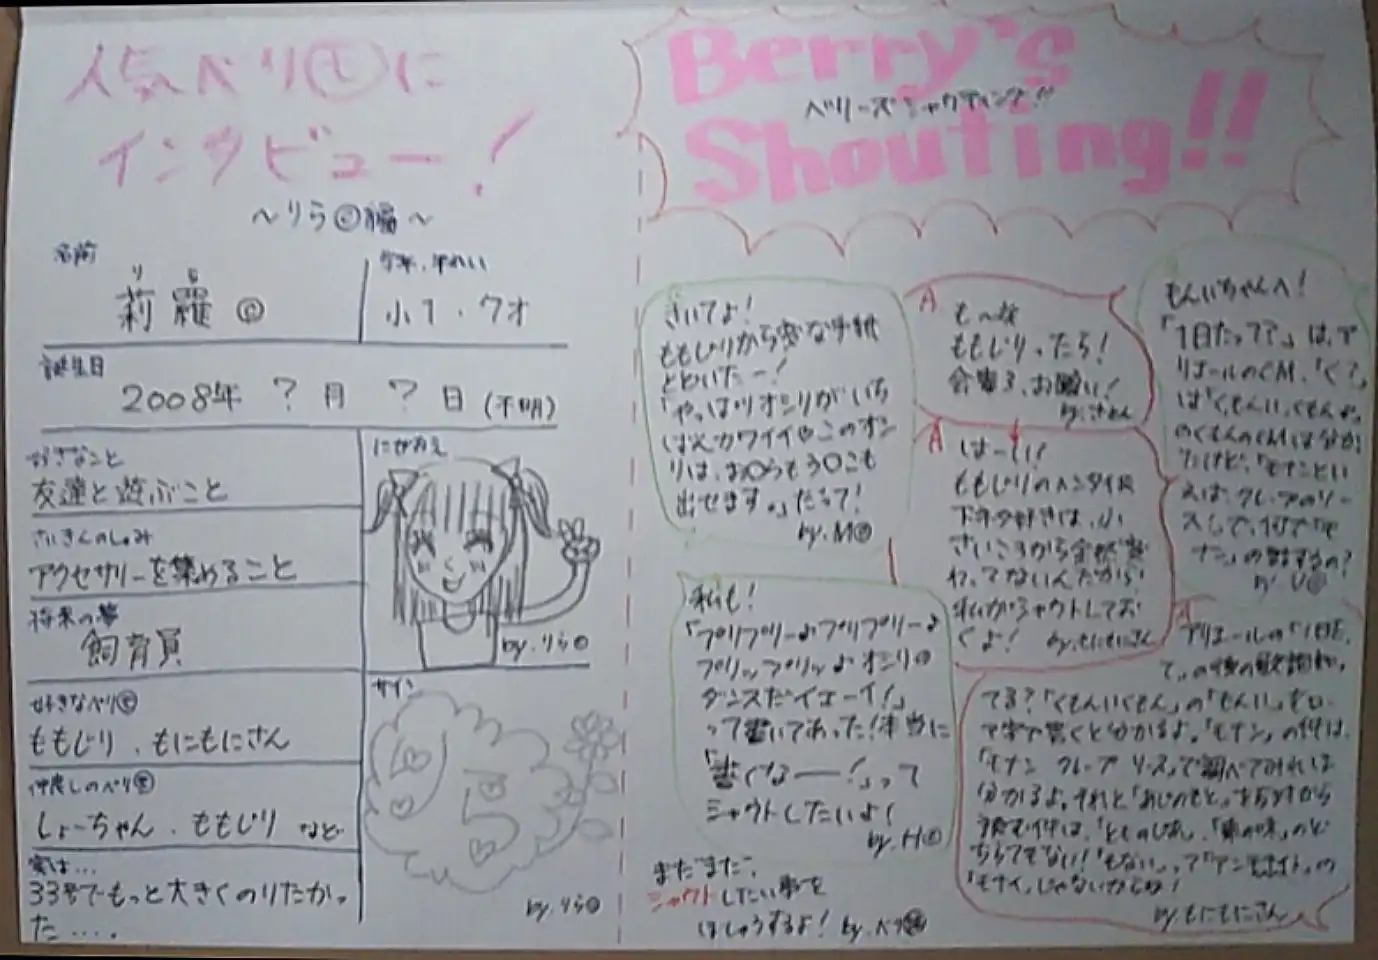 人気ベリ㋲に
インタビュー!
～りら㋲編～
名前
りら
莉羅㋲
学年、年れい
小1・7才
誕生日
2008年 ?月 ?日(不明)
好きなこと
友達と遊ぶこと
さいきんのしゅみ
アクセサリーを集めること
将来の夢
飼育員
好きなベリ㋲
ももじり、もにもにさん
仲良しのベリ㋲
しょーちゃん、ももじり など
実は…
33号でもっと大きくのりたかっ
た….
にがおえ
by.りら㋲
サイン
by.りら㋲
Berry's
ベリーズシャウティング!!
Shouting!!
きいてよ!
ももじりから変な手紙
とどいたー!
「やっぱりオシリがいち
ばんカワイイ このオシ
リは、お〇らもう〇こも
出せます。」だって!
by.M㋲
A
も～
ももじりったら!
お願い!
A
はーい!
ももじりのヘンタイ
好きは、小
さいころから全然変
わってないんだから!
私がシャウトしてお
くよ! by.もにもにさん
もんいちゃんへ!
「1日たって?」は、ア
リエールのCM、「く?」
は「くもんいくもん♪」
のくもんのCMは分か
たけど、「モナンとい
えば、クレープのリー
ス」って、何で「モ
ナン」の話するの?
by.U㋲
私も!
「プリプリー♪プリプリー♪
プリップリッ♪オシリの
ダンスだイェーイ!」
って書いてあった!本当に
「書くなーー!」って
シャウトしたいよ!
by.H㋲
A
アリエールの「1日
て」の後の歌詞知っ
てる?「くもんいくもん」の「もんい」を
で書くと分かるよ。「モナン」の件は、
「モナン クレープ リース」で調べてみれば
分かるよ。それと「あじのもと」
「味の味」のど
ちらでもない!「もない」って「アンモナイト」の
「モナイ」じゃないからね!
by.もにもにさん
まだまだ、
シャウトしたい事を
ぼしゅうするよ! by.ベリ㋲